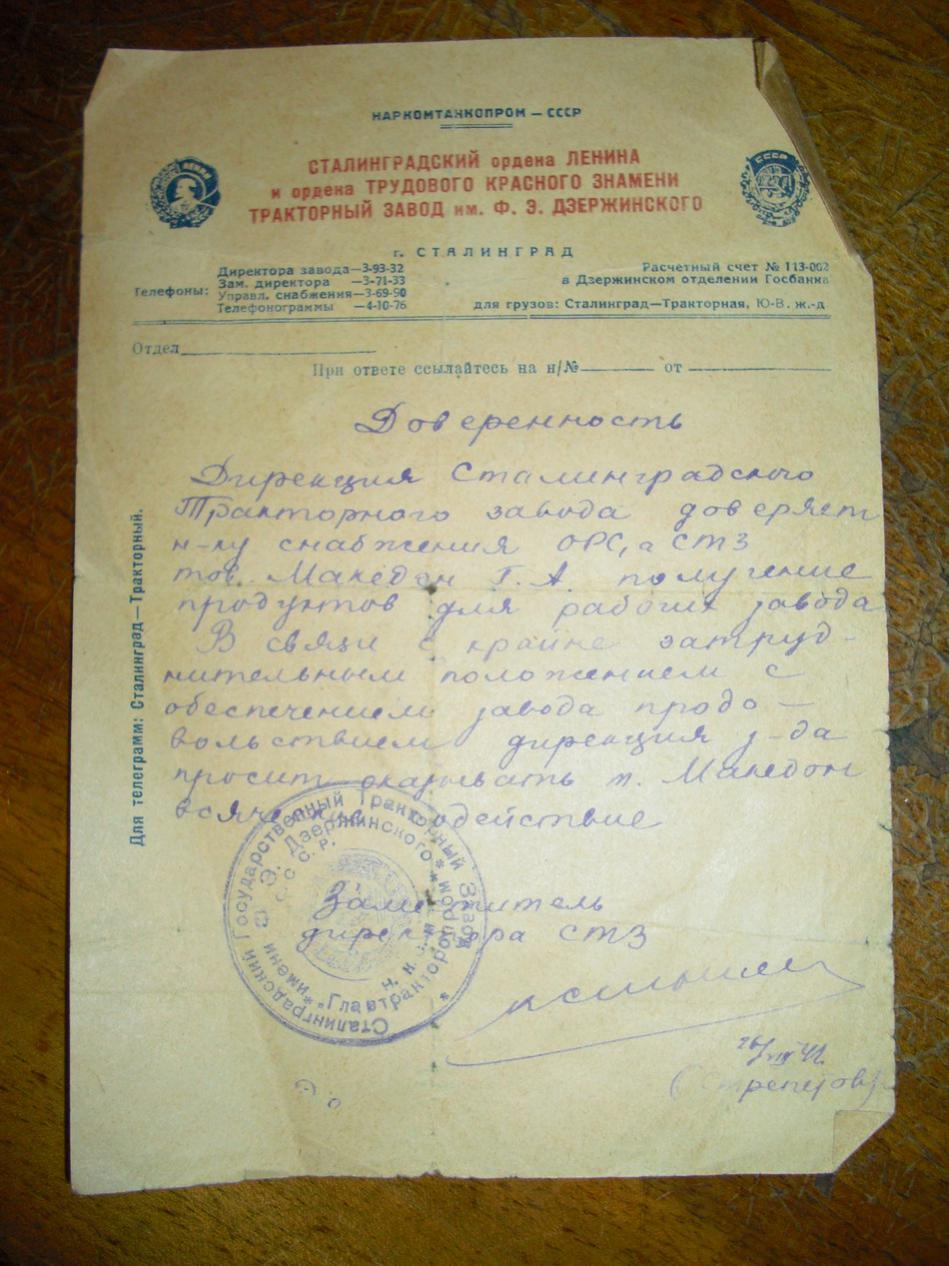 НАРКОМТАНКОПРОМ — СССР
СТАЛИНГРАДСКИЙ ордена ЛЕНИНА
и ордена ТРУДОВОГО КРАСНОГО ЗНАМЕНИ
ТРАКТОРНЫЙ ЗАВОД им. Ф. Э. ДЗЕРЖИНСКОГО
ЛЕНИН
СССР
г. СТАЛИНГРАД
Телефоны:
Директора завода—3-93-32
Зам. директора —3-71-33
Управл. снабжения—3-69-90
Телефонограммы —4-10-76
Расчетный счет № 113-002
в Дзержинском отделении Госбанка
для грузов: Сталинград—Тракторная, Ю-В. ж.-д
Отдел
При ответе ссылайтесь на н/№ от
Для телеграмм: Сталинград—Тракторный.
Доверенность
Дирекция Сталинградского
Тракторного завода доверяет
н-ку снабжения ОРС,а СТЗ
тов. Македон Г. А. получение
продуктов для рабочих завода
В связи с крайне затруд-
нительным положением с
обеспечением завода продо-
вольствием дирекция з-да
просит оказывать т. Македон
всяческое содействие
Заместитель
директора СТЗ
Сталинградский Государственный Тракторный Завод
*имени Ф. Э. Дзержинского*
"Главтракторопром"
С. С. С. Р.